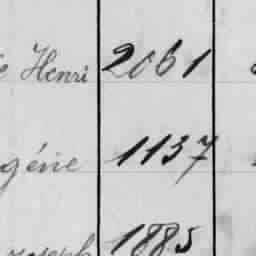 Henri 2061
génie 1137
Joseph 1885